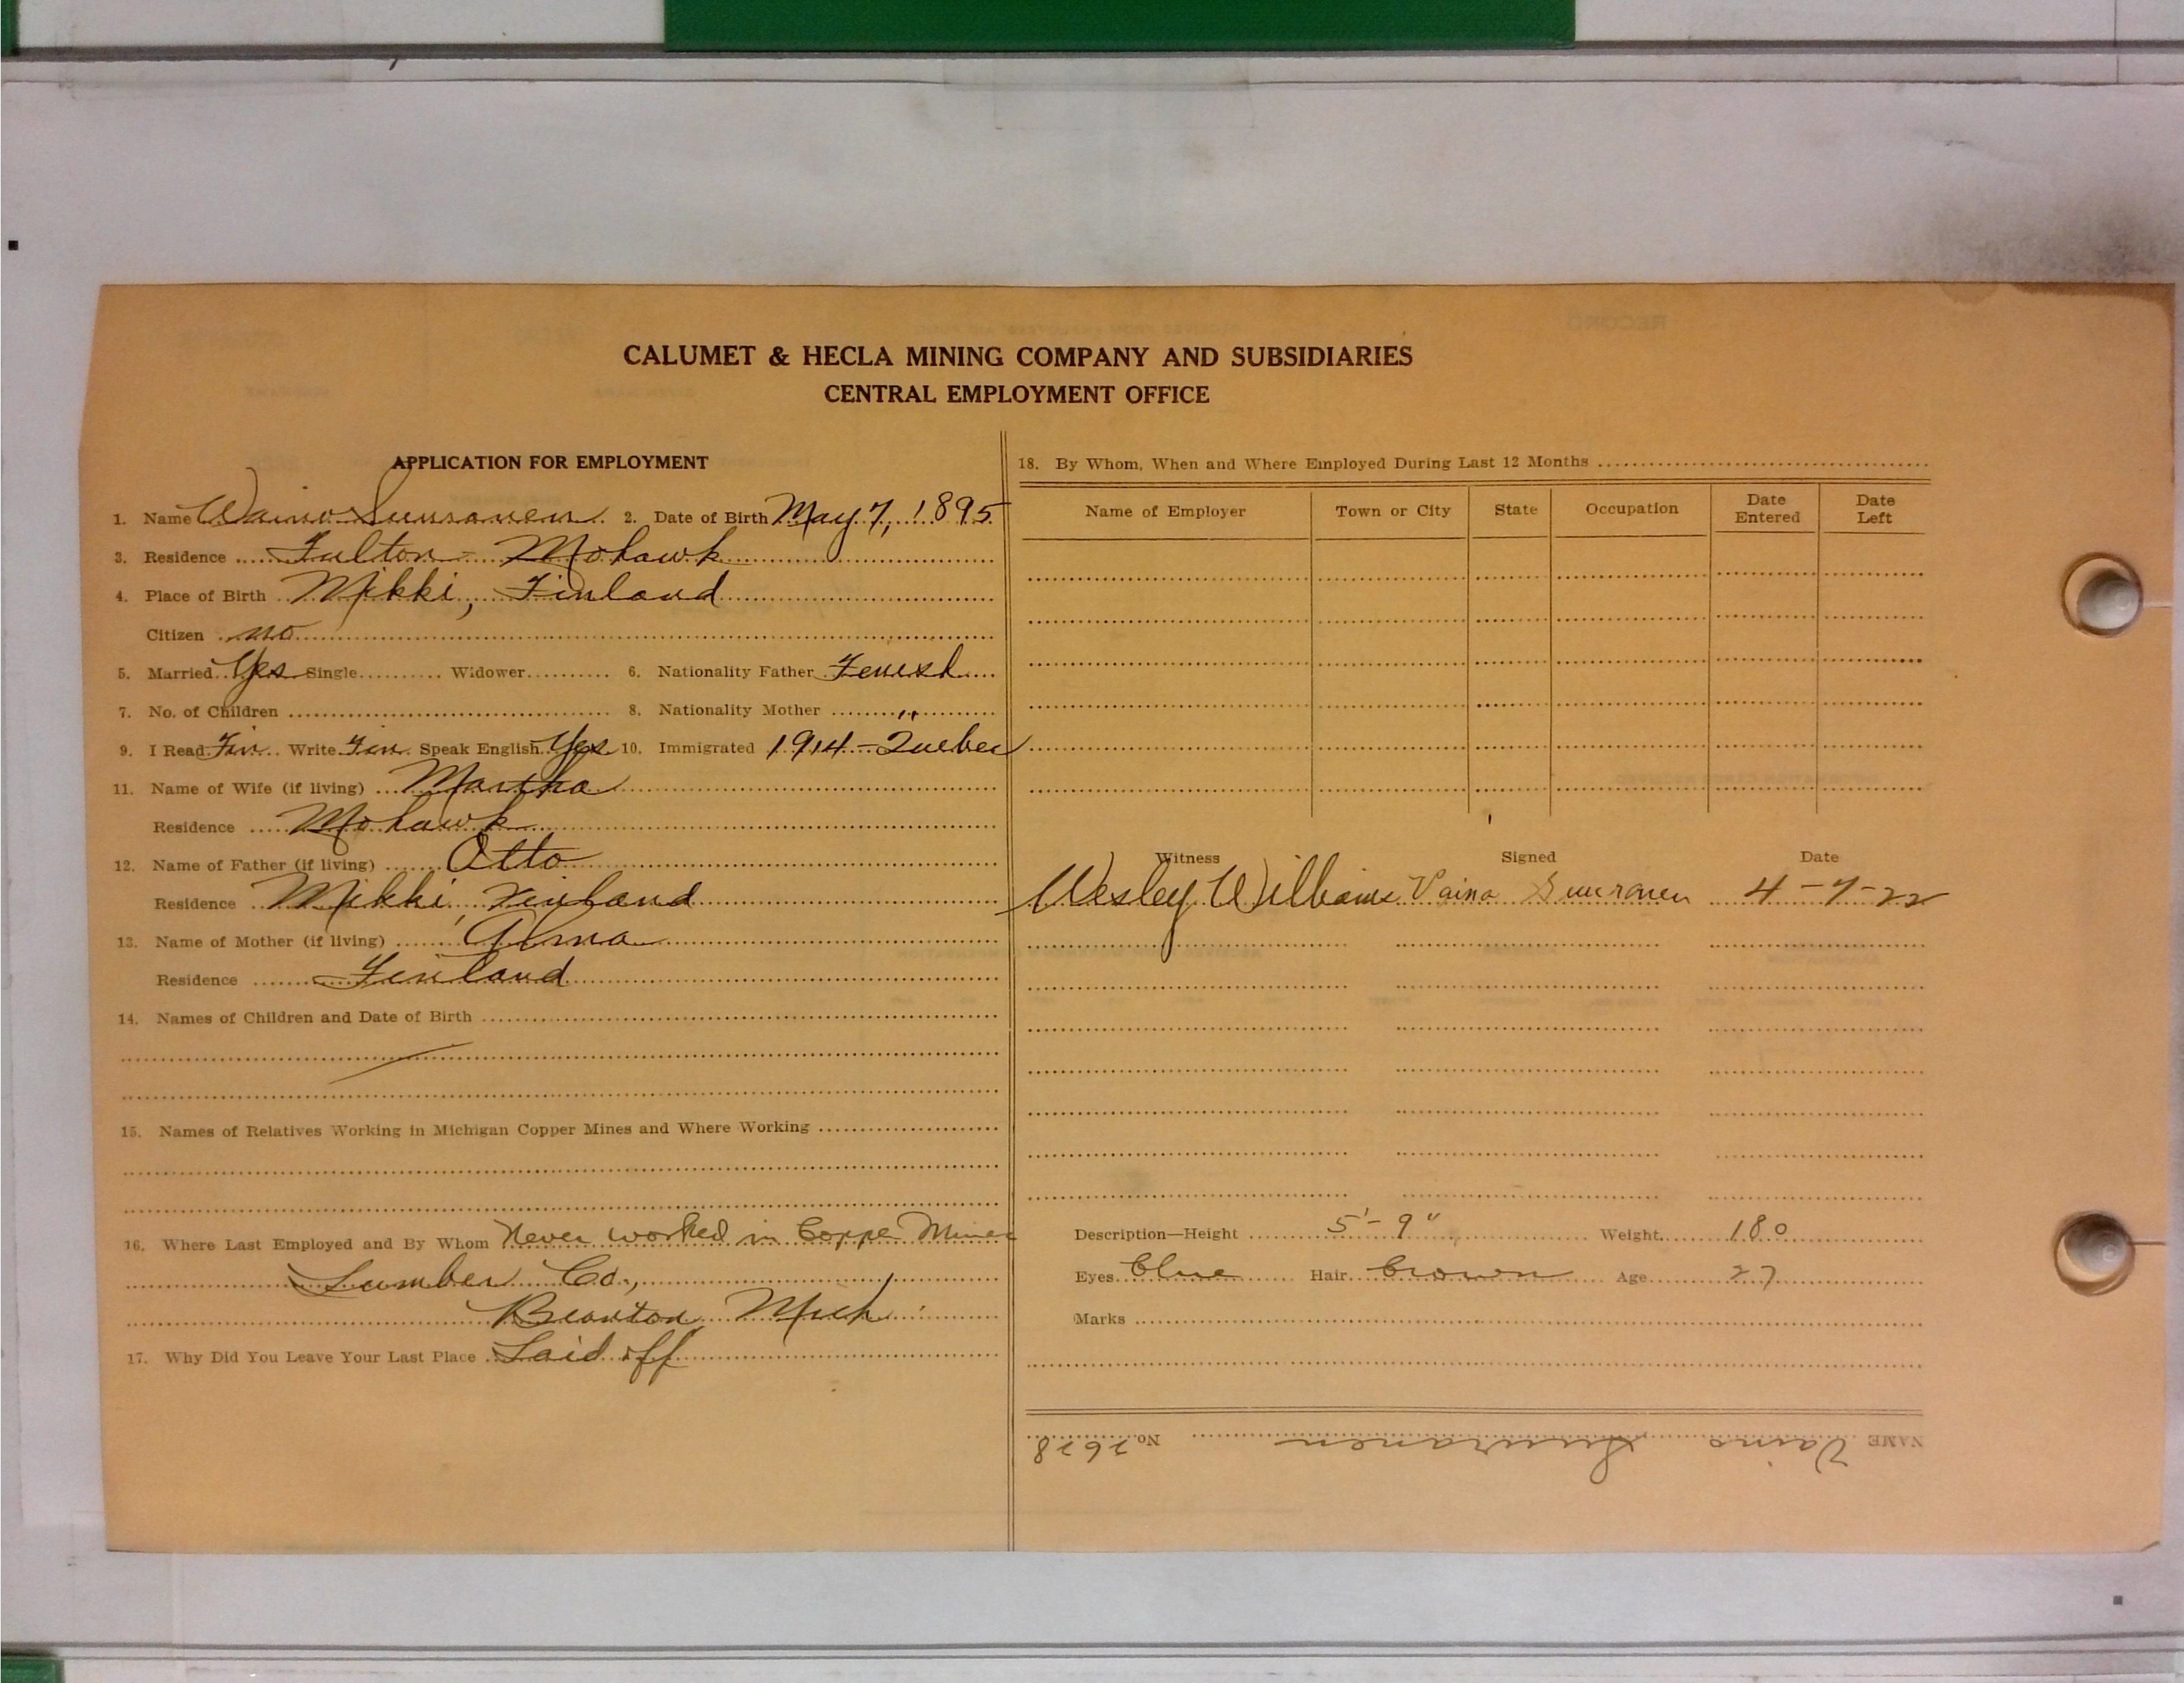 CALUMET & HECLA MINING COMPANY AND SUBSIDIARIES
CENTRAL EMPLOYMENT OFFICE
APPLICATION FOR EMPLOYMENT
1. Name Waino Suuronen 2. Date of Birth May 7, 1895
3. Residence Fulton Mohawk
4. Place of Birth Mikki, Finland
Citizen no
5. Married Yes Single Widower 6. Nationality Father
7. No. of Children 8. Nationality Mother "
9. I Read Fin Write Fin Speak English Yes 10. Immigrated 1914 - Quebec
11. Name of Wife (if living) Martha
Residence Mohawk
12. Name of Father (if living) Otto
Residence Mikki, Finland
13. Name of Mother (if living)
Residence Finland
14. Names of Children and Date of Birth
15. Names of Relatives Working in Michigan Copper Mines and Where Working
16. Where Last Employed and By Whom Never worked in Copper Mines
Lumber Co.,
Mich
17. Why Did You Leave Your Last Place Laid off
18. By Whom, When and Where Employed During Last 12 Months
Name of Employer Town or City State Occupation Date Entered Date Left
Witness Signed Date
Wesley Williams Vaino Suuronen 4-7-22
Description—Height 5'-9" Weight 180
Eyes blue Hair brown Age 27
Marks
NAME Vaino Suuronen No. 2628